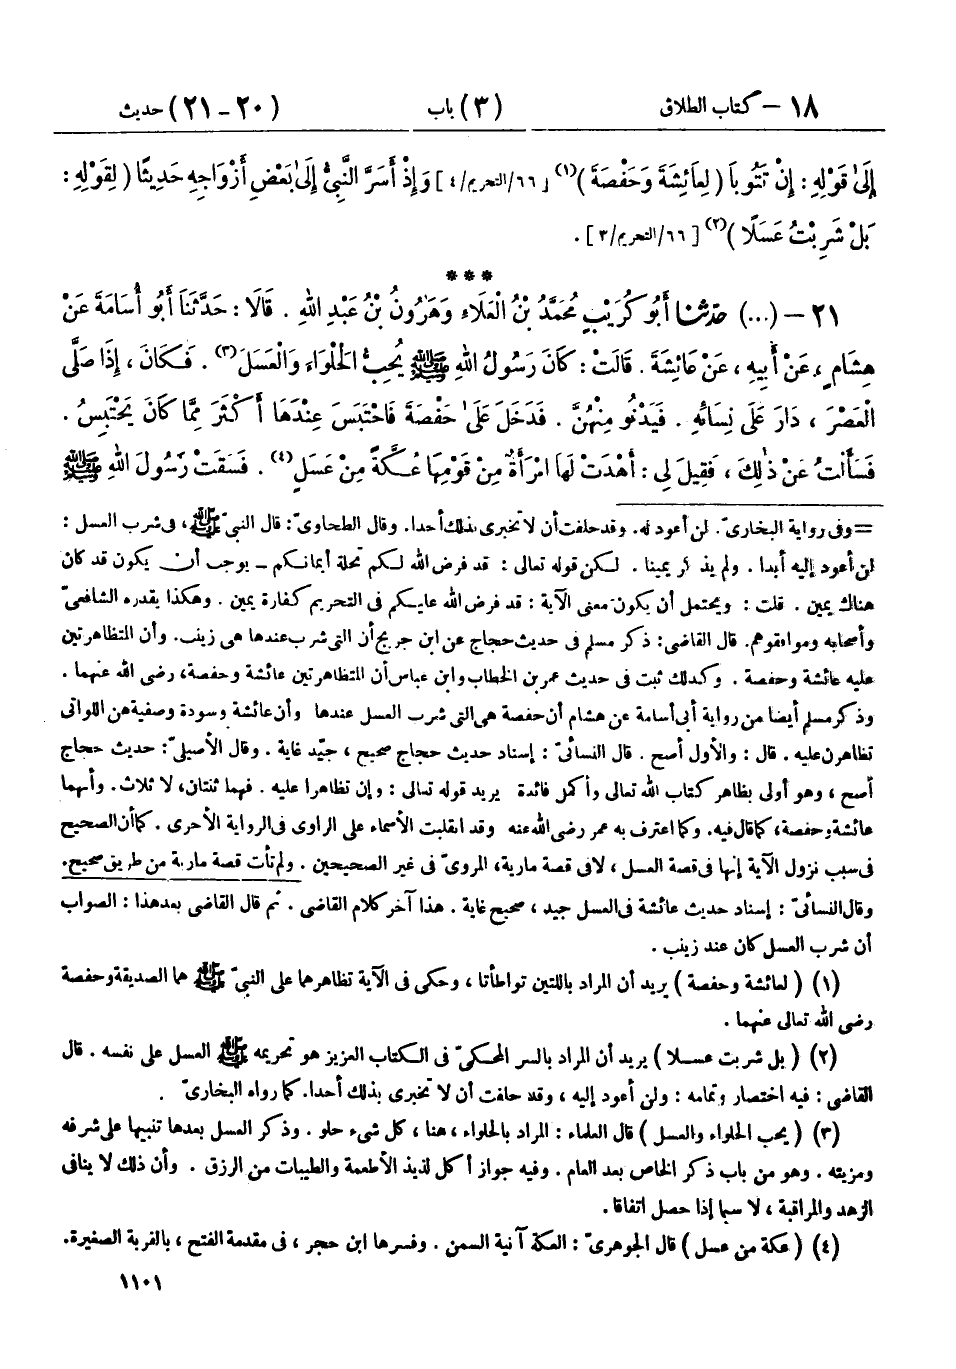 ١٨ – كتاب الطلاق (٣) باب (٢٠ – ٢١) حديث
إِلَىٰ قَوْلِهِ : إِنْ تَتُوبَا ( لِعَائِشَةَ وَحَفْصَةَ )(١) [ ٦٦/التحريم/٤ ] وَإِذْ أَسَرَّ النَّبِيُّ إِلَىٰ بَعْضِ أَزْوَاجِهِ حَدِيثًا ( لِقَوْلِهِ :
بَلْ شَرِبْتُ عَسَلًا )(٢) [ ٦٦/التحريم/٣ ] .
***
٢١ – (...) حَدَّثَنَا أَبُو كُرَيْبٍ مُحَمَّدُ بْنُ الْعَلَاءِ وَهَٰرُونُ بْنُ عَبْدِ اللهِ . قَالَا : حَدَّثَنَا أَبُو أُسَامَةَ عَنْ
هِشَامٍ ، عَنْ أَبِيهِ ، عَنْ عَائِشَةَ . قَالَتْ : كَانَ رَسُولُ اللهِ ﷺ يُحِبُّ الْحَلْوَاءَ وَالْعَسَلَ(٣) . فَكَانَ ، إِذَا صَلَّى
الْعَصْرَ ، دَارَ عَلَى نِسَائِهِ . فَيَدْنُو مِنْهُنَّ . فَدَخَلَ عَلَىٰ حَفْصَةَ فَاحْتَبَسَ عِنْدَهَا أَكْثَرَ مِمَّا كَانَ يَحْتَبِسُ .
فَسَأَلْتُ عَنْ ذَٰلِكَ ، فَقِيلَ لِي : أَهْدَتْ لَهَا امْرَأَةٌ مِنْ قَوْمِهَا عُكَّةً مِنْ عَسَلٍ(٤) . فَسَقَتْ رَسُولَ اللهِ ﷺ
= وفى رواية البخارىّ. لن أعود له. وقد حلفت أن لا تخبرى بذلك أحدا. وقال الطحاوىّ: قال النبىّ ﷺ، فى شرب العسل :
لن أعود إليه أبدا . ولم يذكر يمينا . لكن قوله تعالى : قد فرض الله لكم تحلة أيمانكم – يوجب أن يكون قد كان
هناك يمين . قلت : ويحتمل أن يكون معنى الآية : قد فرض الله عليكم فى التحريم كفارة يمين . وهكذا يقدره الشافعىّ
وأصحابه وموافقوهم. قال القاضى: ذكر مسلم فى حديث حجاج عن ابن جريج أن التى شرب عندها هى زينب. وأن المتظاهرتين
عليه عائشة وحفصة . وكذلك ثبت فى حديث عمر بن الخطاب وابن عباس أن المتظاهرتين عائشة وحفصة، رضى الله عنهما .
وذكر مسلم أيضا من رواية أبى أسامة عن هشام أن حفصة هى التى شرب العسل عندها وأن عائشة وسودة وصفية هن اللواتى
تظاهرن عليه . قال : والأول أصح . قال النسائىّ : إسناد حديث حجاج صحيح ، جيّد غاية . وقال الأصيلىّ: حديث حجاج
أصح ، وهو أولى بظاهر كتاب الله تعالى وأكمل فائدة يريد قوله تعالى : وإن تظاهرا عليه . فهما ثنتان، لا ثلاث. وأنهما
عائشة وحفصة، كما قال فيه. وكما اعترف به عمر رضى الله عنه وقد انقلبت الأسماء على الراوى فى الرواية الأخرى . كما أن الصحيح
فى سبب نزول الآية إنها فى قصة العسل ، لا فى قصة مارية، المروىّ فى غير الصحيحين . ولم تأت قصة مارية من طريق صحيح.
وقال النسائىّ : إسناد حديث عائشة فى العسل جيد ، صحيح غاية . هذا آخر كلام القاضى . ثم قال القاضى بعد هذا : الصواب
أن شرب العسل كان عند زينب .
(١) ( لعائشة وحفصة ) يريد أن المراد باللتين تواطأتا ، وحكى فى الآية تظاهرهما على النبىّ ﷺ هما الصديقة وحفصة
رضى الله تعالى عنهما .
(٢) ( بل شربت عسلا ) يريد أن المراد بالسر المحكىّ فى الكتاب العزيز هو تحريمه ﷺ العسل على نفسه . قال
القاضى : فيه اختصار وتمامه : ولن أعود إليه ، وقد حلفت أن لا تخبرى بذلك أحدا. كما رواه البخارىّ .
(٣) ( يحب الحلواء والعسل ) قال العلماء : المراد بالحلواء ، هنا ، كل شىء حلو . وذكر العسل بعدها تنبيها على شرفه
ومزيته . وهو من باب ذكر الخاص بعد العام . وفيه جواز أكل لذيذ الأطعمة والطيبات من الرزق . وأن ذلك لا ينافى
الزهد والمراقبة ، لا سيما إذا حصل اتفاقا.
(٤) ( عكة من عسل ) قال الجوهرىّ : العكة آنية السمن . وفسرها ابن حجر ، فى مقدمة الفتح ، بالقربة الصغيرة.
١١٠١